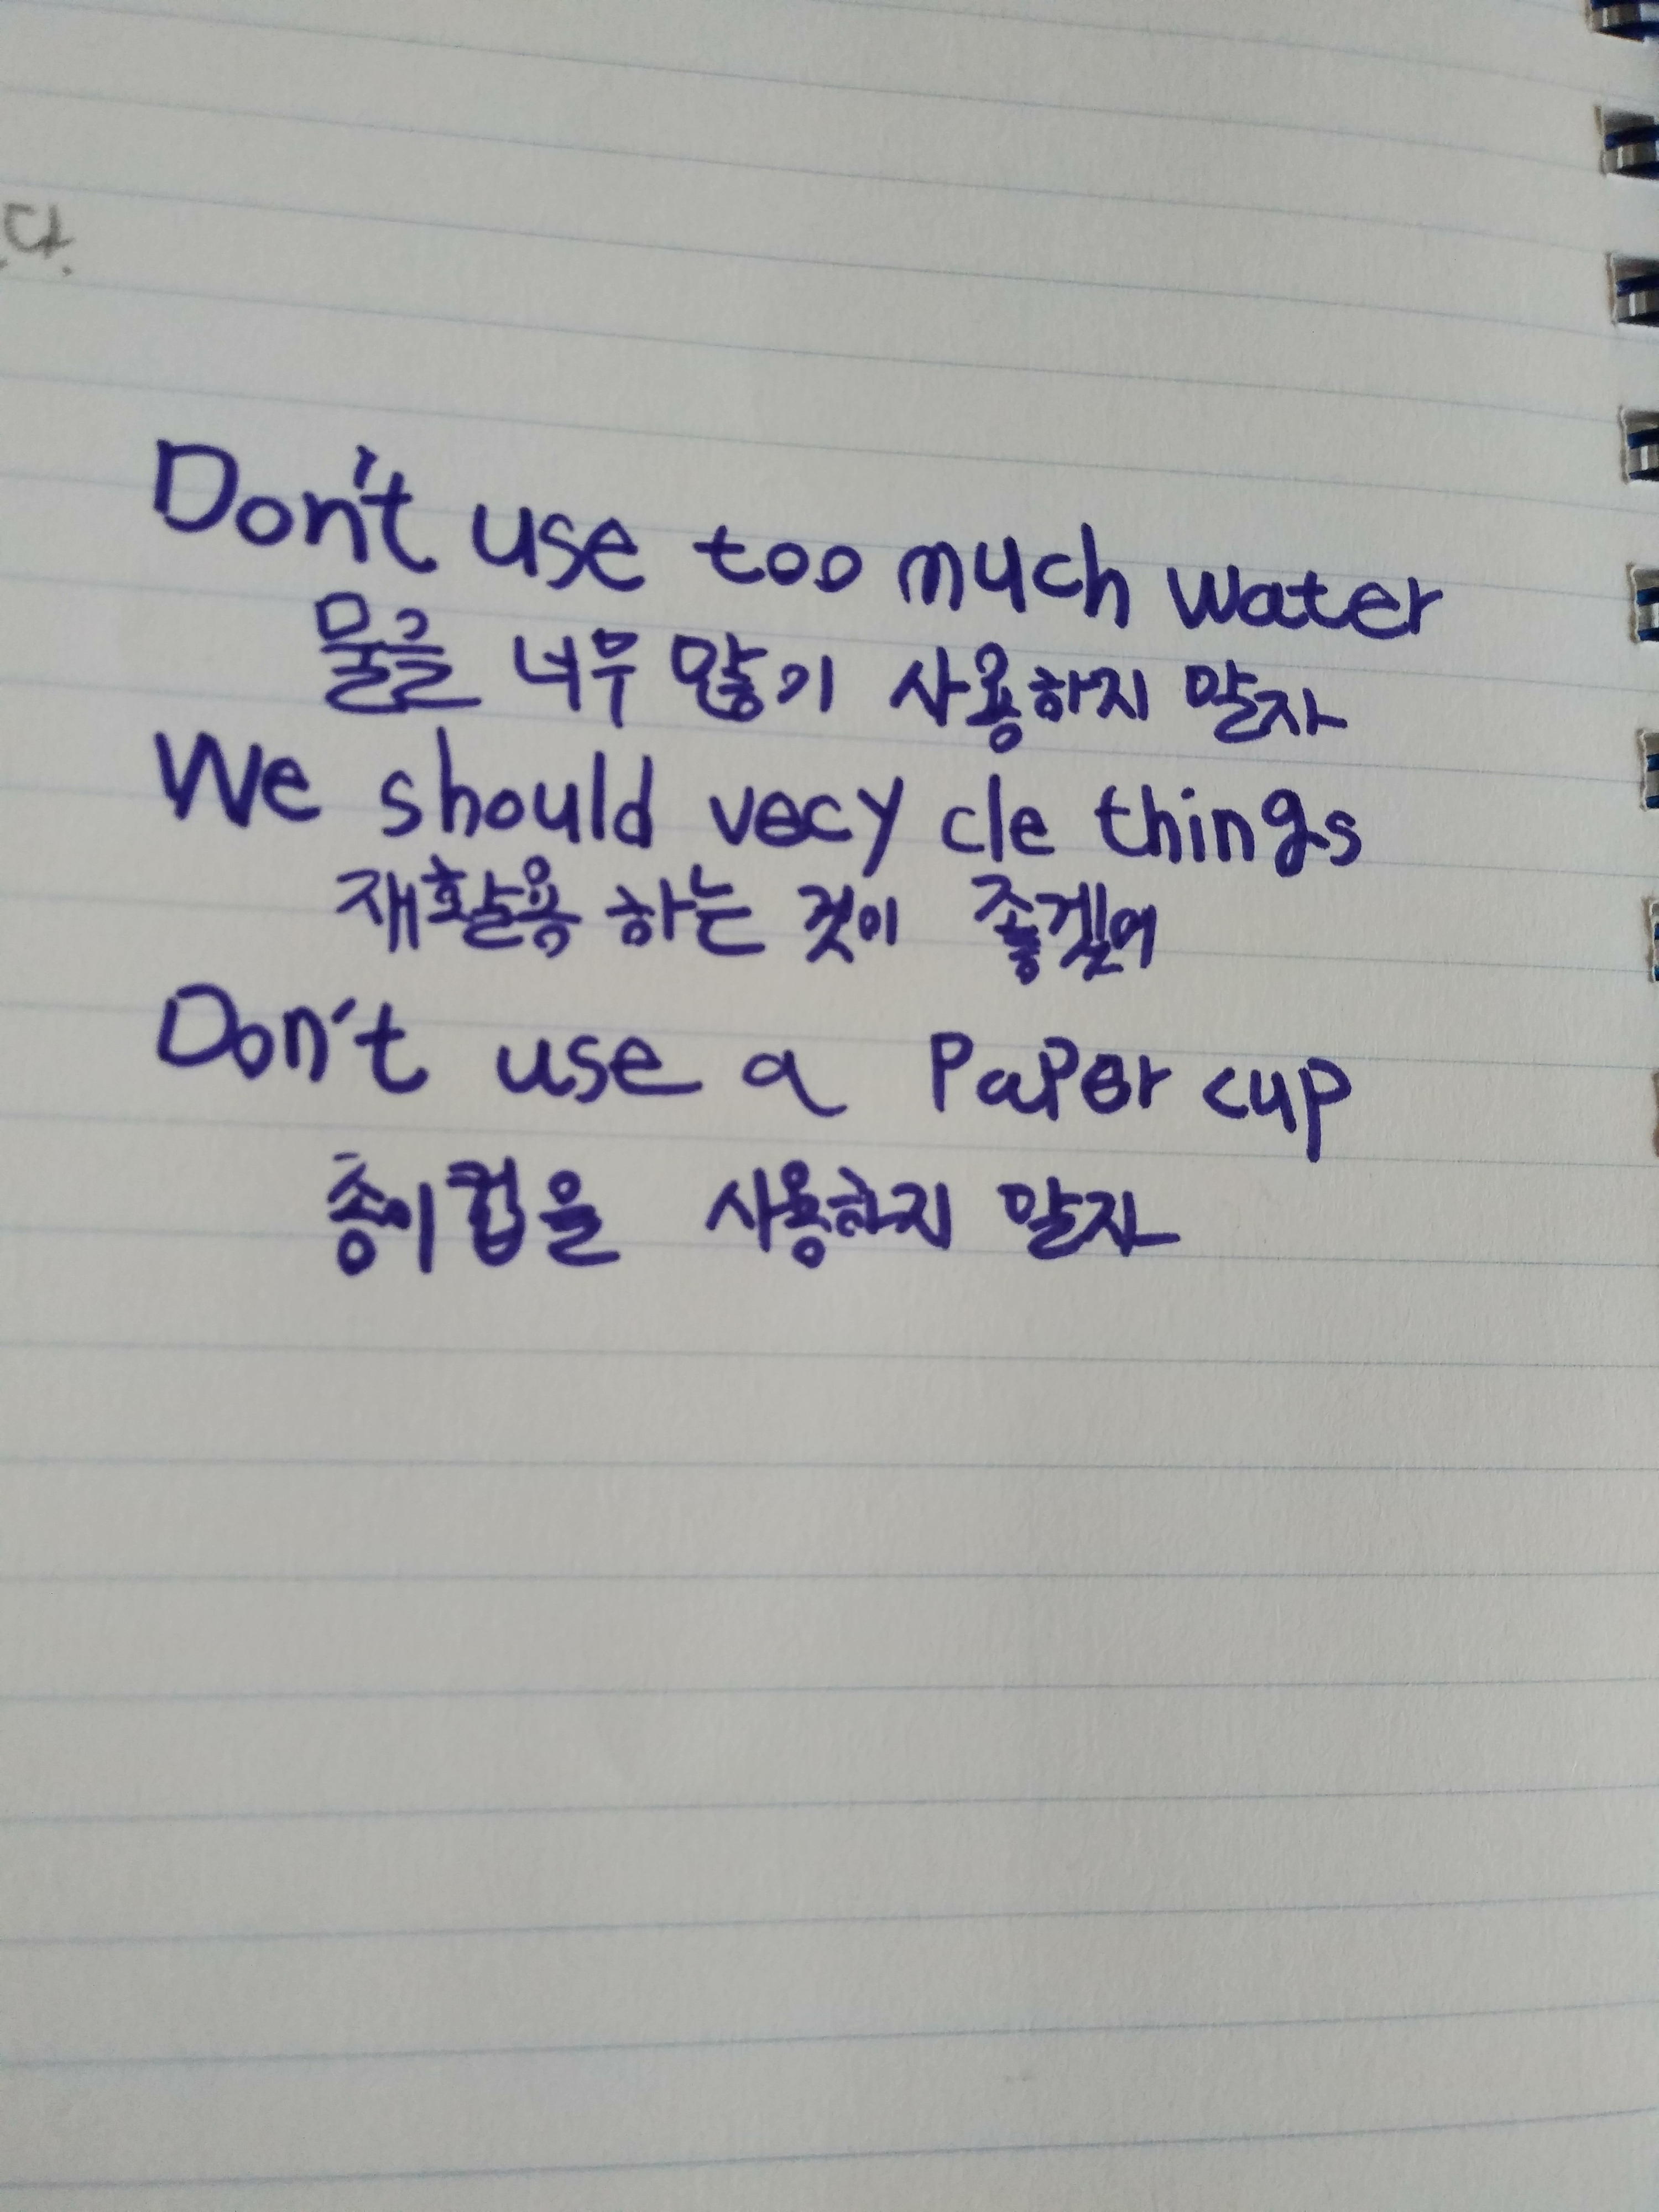 다.
Don't use too much water
물을 너무 많기 사용하지 말자
We should vecy cle things
재활용 하는 것이 좋겠어
Don't use a Paper cup
종이컵을 사용하지 말자